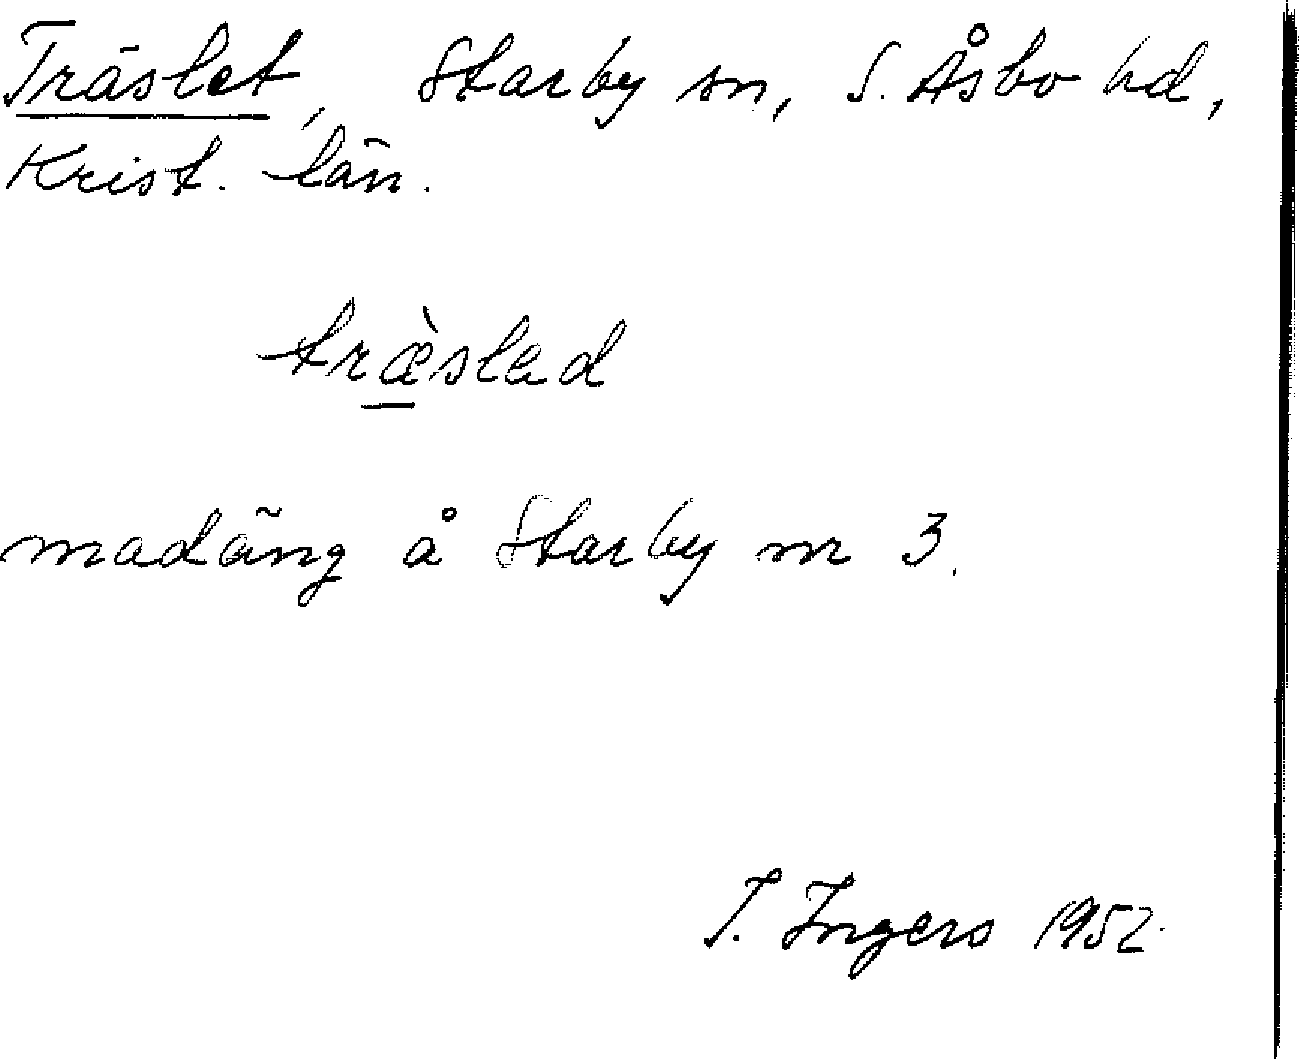 Träslet, Starby sn, S. Åsbo hd,
Krist. län.
træ̀slad
madäng å Starby nr 3.
I. Ingers 1952.